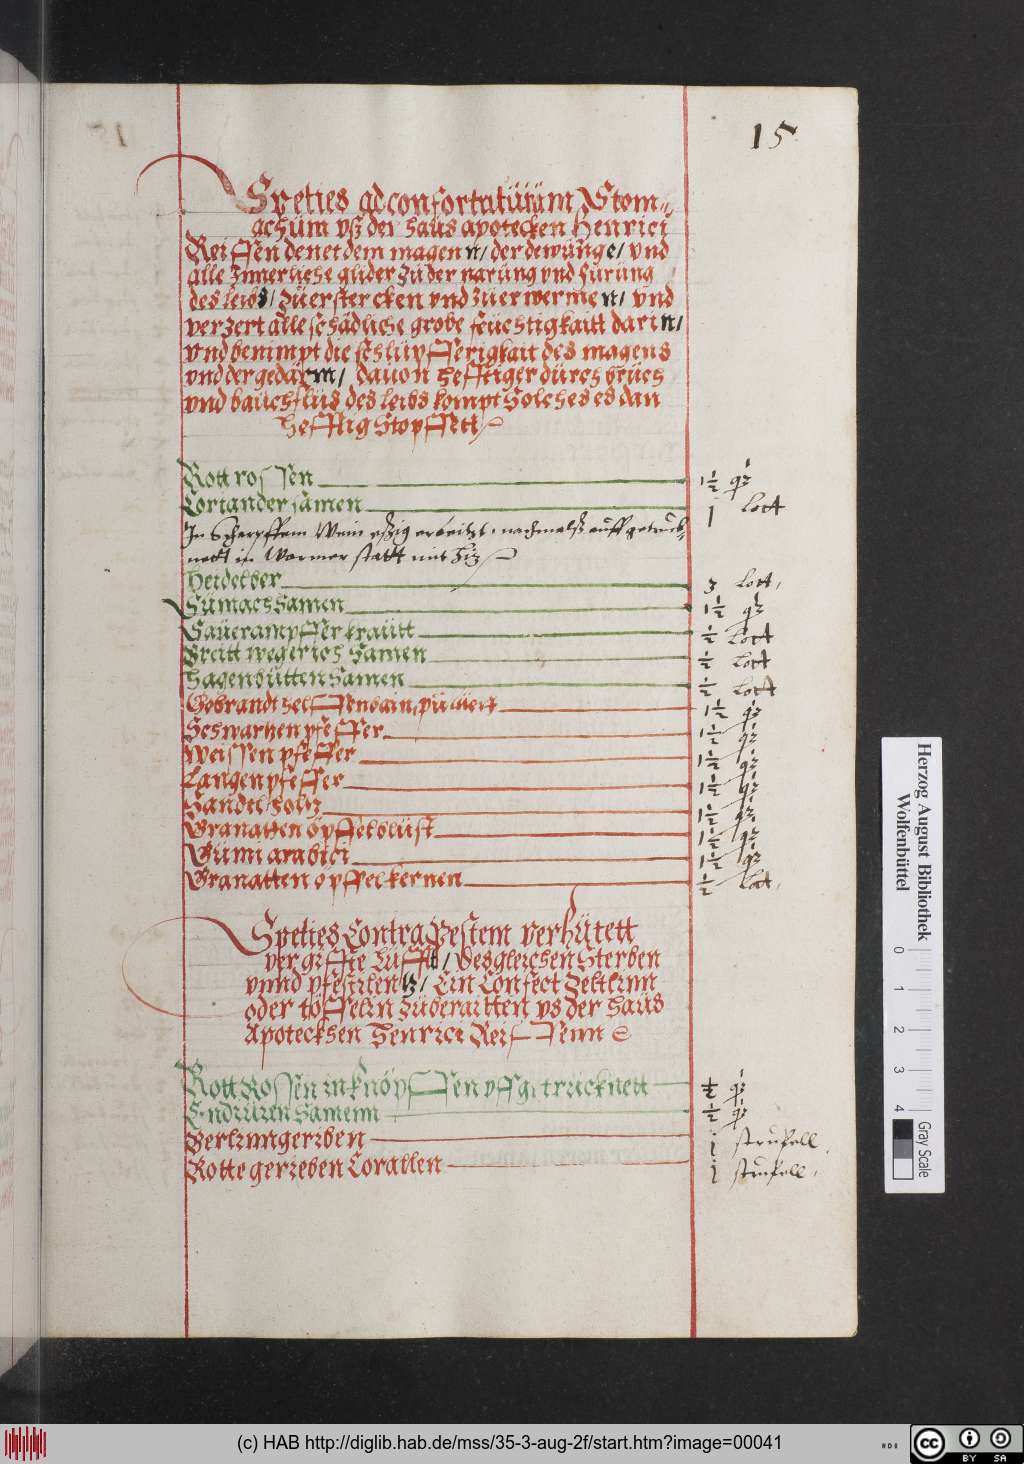 15
Speties ad confortatiüüm Stom=
achüm vß der haüs apotecken Henrici
Reiffen denet dem magenn/ der dewünge/ vnd
alle Innerliche glider zu der narüng vnd fürüng
des leibs/ züerstercken vnd züerwermenn/ vnd
verzert alle schädliche grobe feüchtigkaitt darinn/
vnd benimpt die schlüpfferigkait des magens
vnd der gedärm/ dauon hefftiger dürch brüch
vnd baüchflüs des leibs kompt Solches es dan
hefftig Stopffett
Rott rossen 1½ qz
Coriander samen 1 Lott
In Scharpffem Wein eßig erbeitzt, nachmalß auff getruck=
nett in Warmer statt mit Fiz
Heidelber 3 Lott,
Sümach Samen 1½ qz
Saürampffer kraütt ½ Lott
Breitt wegerich Samen ½ Lott
Hagenbütten Samen ½ Lott
Gebrandt helffenbain, pülüert 1½ qz
Schwartzen pfeffer 1½ qz
Weissen pfeffer 1½ qz
Langen pfeffer 1½ qz
Sandel holtz 1½ qz
Granatten öpffelblüst 1½ qz
Gumi arabici 1½ qz
Granatten öpffel kernen ½ Lot,
Speties Contra Pestem verhütett
vergiffte Lüfft/ Desgleichen Sterben
vnnd pfestilentz/ Ein Confect Zeltlinn
oder töffelin züberaitten vs der Haüs
Apotecksen Henrici Reiffenn
Rott Rossen in knöpffen vffgitrücknett ½ qz
Endiuien Samenn ½ qz
Berlinngerieben i strupell
Rotte gerieben Corallen i strupell,
Herzog August Bibliothek
Wolfenbüttel
0 1 2 3 4
Gray Scale
(c) HAB http://diglib.hab.de/mss/35-3-aug-2f/start.htm?image=00041
cc BY SA